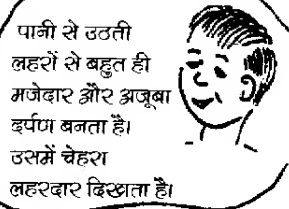 पानी से उठती
लहरों से बहुत ही
मजेदार और अजूबा
दर्पण बनता है।
उसमें चेहरा
लहरदार दिखता है।